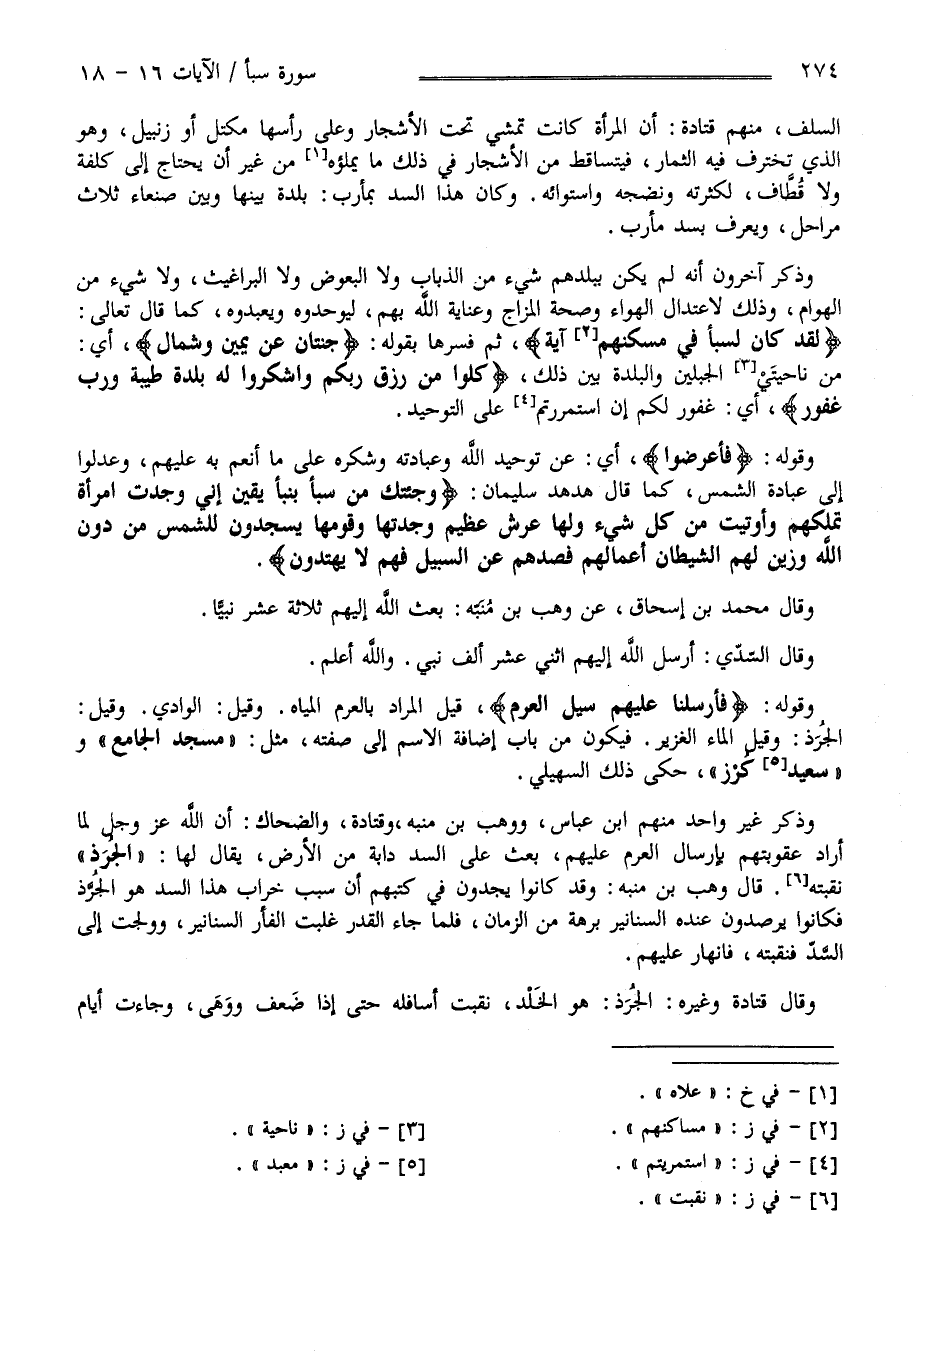 ٢٧٤ سورة سبأ / الآيات ١٦ - ١٨
السلف، منهم قتادة: أن المرأة كانت تمشي تحت الأشجار وعلى رأسها مكتل أو زنبيل، وهو
الذي تخترف فيه الثمار، فيتساقط من الأشجار في ذلك ما يملؤه[١] من غير أن يحتاج إلى كلفة
ولا قُطَّاف، لكثرته ونضجه واستوائه. وكان هذا السد بمأرب: بلدة بينها وبين صنعاء ثلاث
مراحل، ويعرف بسد مأرب.
وذكر آخرون أنه لم يكن ببلدهم شيء من الذباب ولا البعوض ولا البراغيث، ولا شيء من
الهوام، وذلك لاعتدال الهواء وصحة المزاج وعناية اللَّه بهم، ليوحدوه ويعبدوه، كما قال تعالى:
﴿لقد كان لسبأ في مسكنهم[٢] آية﴾، ثم فسرها بقوله: ﴿جنتان عن يمين وشمال﴾، أي:
من ناحيتَيْ[٣] الجبلين والبلدة بين ذلك، ﴿كلوا من رزق ربكم واشكروا له بلدة طيبة ورب
غفور﴾، أي: غفور لكم إن استمررتم[٤] على التوحيد.
وقوله: ﴿فأعرضوا﴾، أي: عن توحيد اللَّه وعبادته وشكره على ما أنعم به عليهم، وعدلوا
إلى عبادة الشمس، كما قال هدهد سليمان: ﴿وجئتك من سبأ بنبأ يقين إني وجدت امرأة
تملكهم وأوتيت من كل شيء ولها عرش عظيم وجدتها وقومها يسجدون للشمس من دون
اللَّه وزين لهم الشيطان أعمالهم فصدهم عن السبيل فهم لا يهتدون﴾.
وقال محمد بن إسحاق، عن وهب بن مُنَبَه: بعث اللَّه إليهم ثلاثة عشر نبيًّا.
وقال السّدّي: أرسل اللَّه إليهم اثني عشر ألف نبي. واللَّه أعلم.
وقوله: ﴿فأرسلنا عليهم سيل العرم﴾، قيل المراد بالعرم المياه. وقيل: الوادي. وقيل:
الجُرَذ: وقيل الماء الغزير. فيكون من باب إضافة الاسم إلى صفته، مثل: «مسجد الجامع» و
«سعيد[٥] كُرْز»، حكى ذلك السهيلي.
وذكر غير واحد منهم ابن عباس، ووهب بن منبه،وقتادة، والضحاك: أن اللَّه عز وجل لما
أراد عقوبتهم بإرسال العرم عليهم، بعث على السد دابة من الأرض، يقال لها: «الجُرَذ»
نقبته[٦]. قال وهب بن منبه: وقد كانوا يجدون في كتبهم أن سبب خراب هذا السد هو الجُرَذ
فكانوا يرصدون عنده السنانير برهة من الزمان، فلما جاء القدر غلبت الفأر السنانير، وولجت إلى
السَّدّ فنقبته، فانهار عليهم.
وقال قتادة وغيره: الجُرَذ: هو الخَلْد، نقبت أسافله حتى إذا ضَعف ووَهَى، وجاءت أيام
[١] - في خ: «علاه».
[٢] - في ز: «مساكنهم». [٣] - في ز: «ناحية».
[٤] - في ز: «استمريتم». [٥] - في ز: «معبد».
[٦] - في ز: «نقبت».